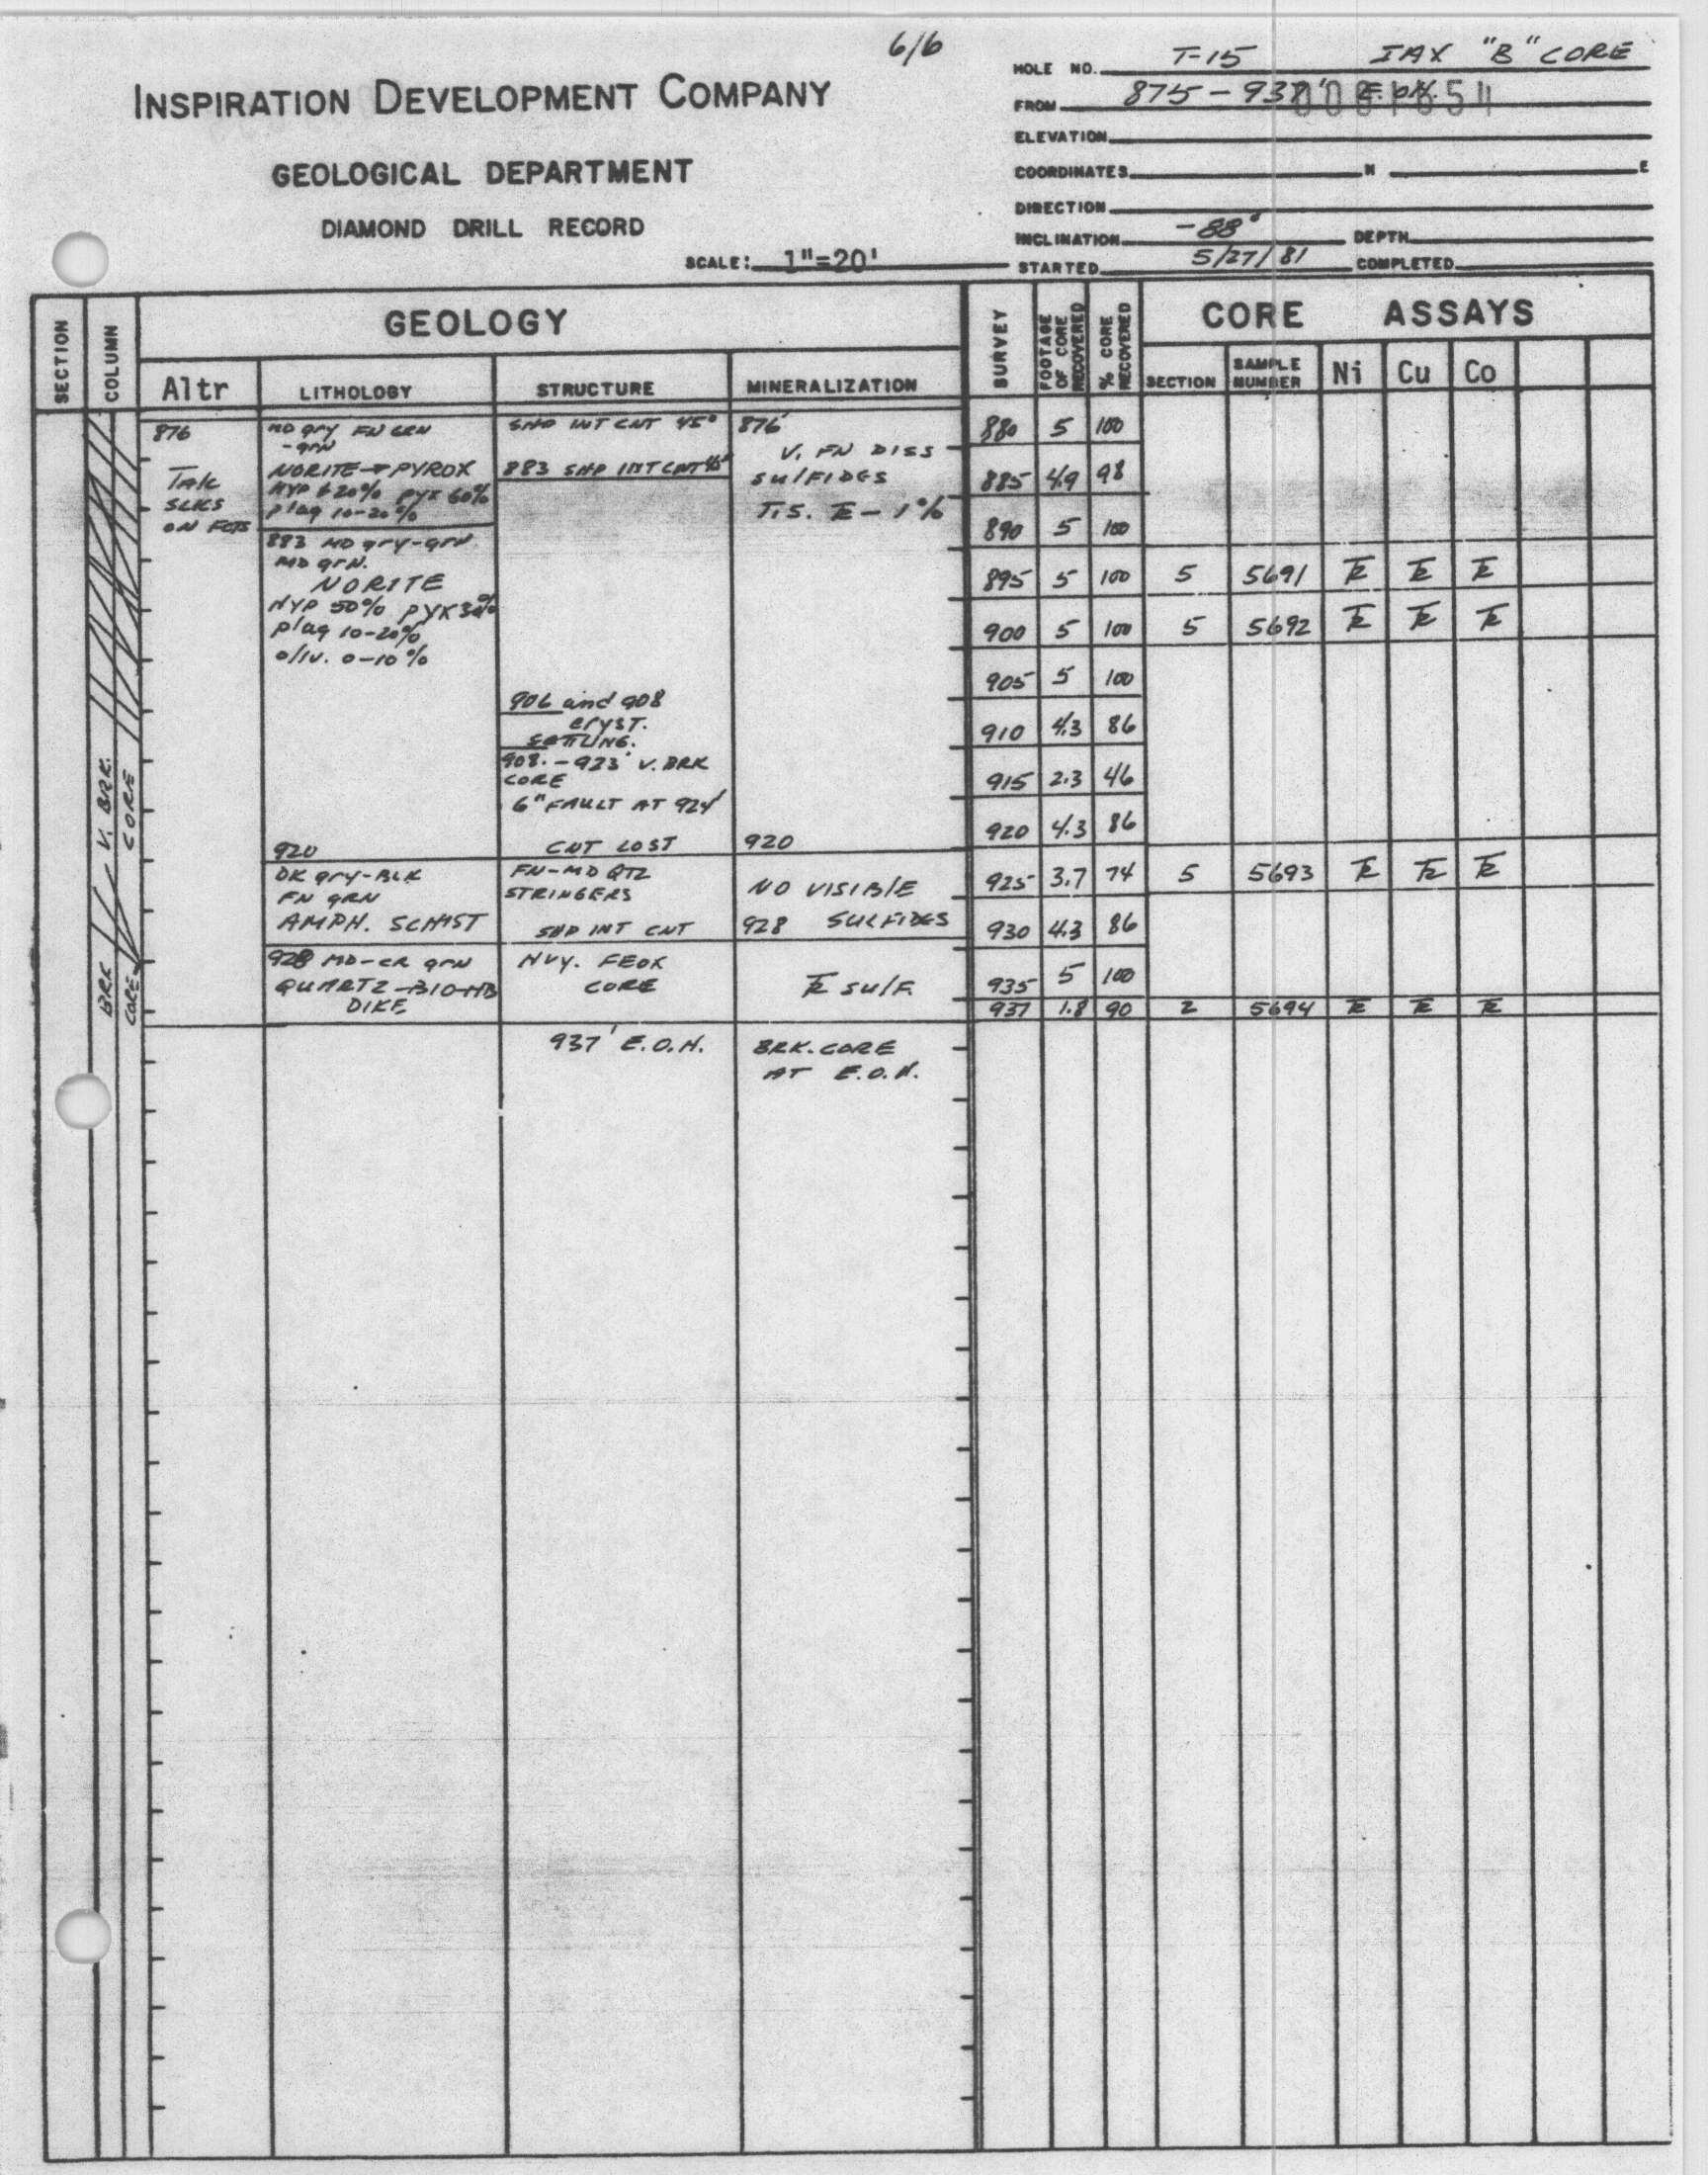 6/6
INSPIRATION DEVELOPMENT COMPANY
GEOLOGICAL DEPARTMENT
DIAMOND DRILL RECORD
SCALE: 1"=20'
HOLE NO. T-15 IAX "B" CORE
FROM 875-937' E.O.H.
ELEVATION
COORDINATES N E
DIRECTION
INCLINATION -88° DEPTH
STARTED 5/27/81 COMPLETED
SECTION
COLUMN
GEOLOGY
Altr LITHOLOGY STRUCTURE MINERALIZATION
SURVEY
FOOTAGE OF CORE RECOVERED
% CORE RECOVERED
CORE ASSAYS
SECTION SAMPLE NUMBER Ni Cu Co
V. BRK. CORE
BRK CORE
876
Talc
SLKS
ON FCTS
MD gry FN GRN
-grn
NORITE → PYROX
HYP ± 20% PYX 60%
plag 10-20%
883 MD gry-grn
MD grn.
NORITE
HYP 50% PYX 30%
plag 10-20%
oliv. 0-10%
920
DK gry-BLK
FN GRN
AMPH. SCHIST
928 MD-CR grn
QUARTZ-BIO-HB
DIKE
SHP INT CNT 45°
883 SHP INT CNT 45°
906 and 908
cryst.
SETTLING.
908.-923' V. BRK
CORE
6" FAULT AT 924'
CNT LOST
FN-MD QTZ
STRINGERS
SHP INT CNT
HVY. FEOX
CORE
937' E.O.H.
876'
V. FN DISS
SULFIDES
T.S. TR - 1%
920
NO VISIBLE
928 SULFIDES
TR SULF.
BRK. CORE
AT E.O.H.
880 5 100
885 4.9 98
890 5 100
895 5 100 5 5691 TR TR TR
900 5 100 5 5692 TR TR TR
905 5 100
910 4.3 86
915 2.3 46
920 4.3 86
925 3.7 74 5 5693 TR TR TR
930 4.3 86
935 5 100
937 1.8 90 2 5694 TR TR TR